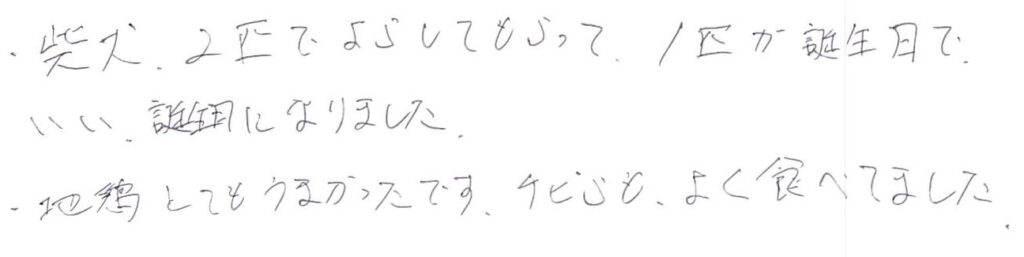 ・柴犬、2匹でよらしてもらって、1匹が誕生日で、
いい、誕生日になりました。
・地鶏とてもうまかったです、チビらも、よく食べてました。